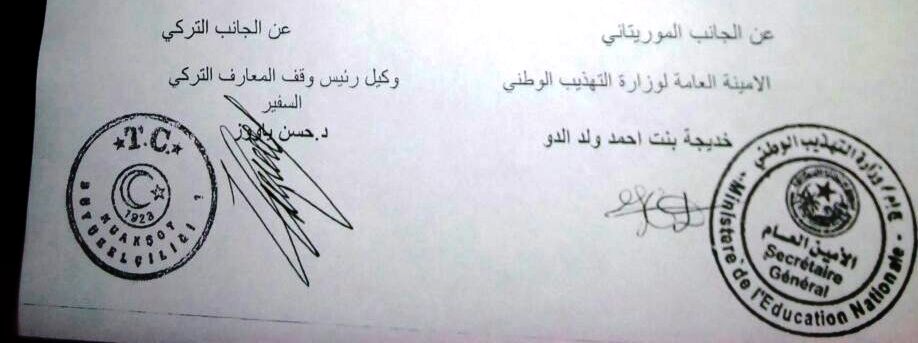 عن الجانب الموريتاني
الامينة العامة لوزارة التهذيب الوطني
خديجة بنت احمد ولد الدو
ج إ م / وزارة التهذيب الوطني
الأمين العام
Secrétaire
Général
Ministère de l'Education Nationale
عن الجانب التركي
وكيل رئيس وقف المعارف التركي
السفير
د.حسن ياووز
T.C.
1923
NUAKŞOT
BÜYÜKELÇİLİĞİ